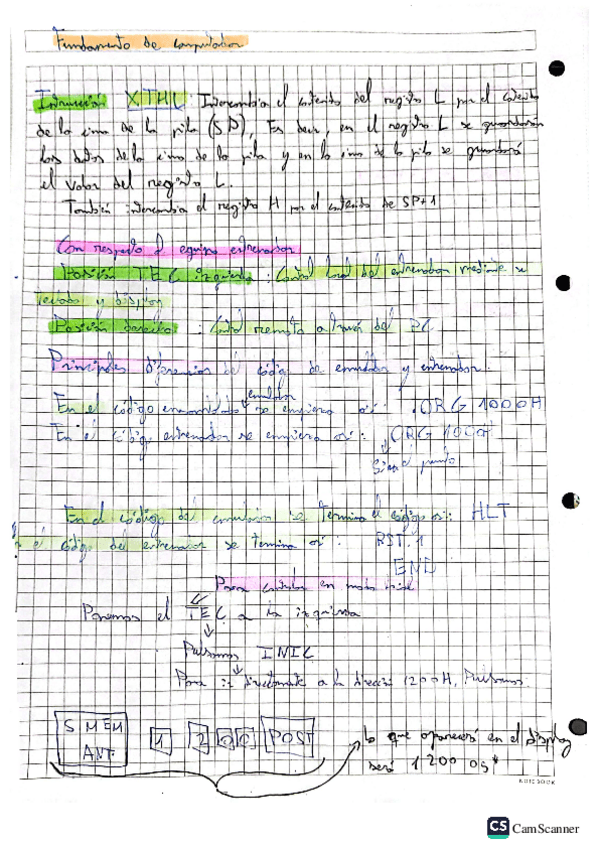 Fundamento de computador
Instrucción XTHL Intercambia el contenido del registro L por el contenido
de la cima de la pila (SP), Es decir, en el registro L se guardarán
los datos de la cima de la pila y en la cima de la pila se guardará
el valor del registro L.
También intercambia el registro H por el contenido de SP+1
Con respecto al equipo entrenador
Posición TEC izquierda : Control local del entrenador mediante
Teclado y display
Posición derecha : Control remoto a través del PC
Principales diferencias del código de emulador y entrenador:
emulador
En el código se empieza así: .ORG 1000H
En el código entrenador se empieza así: ORG 1000H
Sin punto
En el código del emulador se termina el código así: HLT
el código del entrenador se termina así: RST 1
END
Para controlar en modo local
Ponemos el TEC a la izquierda
Pulsamos INIC
Para ir directamente a la dirección 1200H, Pulsamos
S MEM
ANT 1 2 0 0 POST
lo que aparecerá en el display
será 1200
CS CamScanner